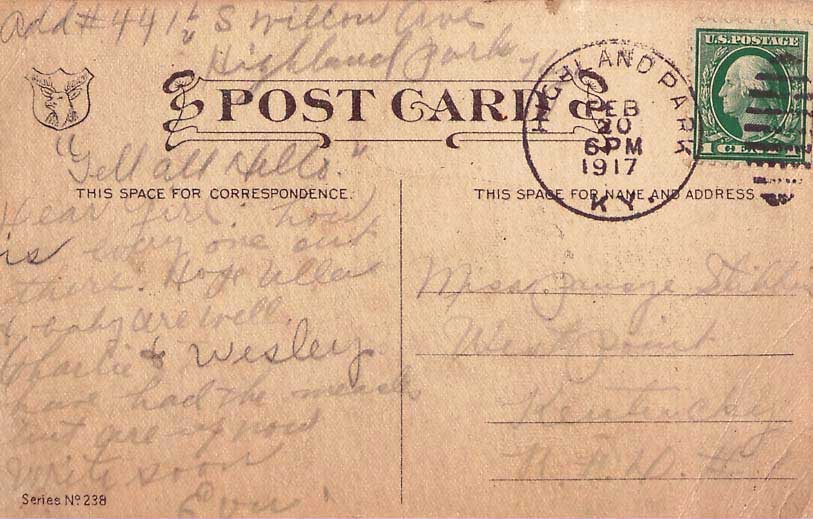 Add # 4416 S Willow Ave
Highland Park Ky
POST CARD
HIGHLAND PARK
FEB
20
6 PM
1917
KY.
U.S. POSTAGE
1 CENT 1
"Tell all Hello."
THIS SPACE FOR CORRESPONDENCE.
Dear Girl: how
is every one out
there. Hope
& baby are well.
Charlie & Wesley
have had the measels
but are up now
Write soon
Series No. 238
THIS SPACE FOR NAME AND ADDRESS
Miss
West point
Kentucky
R.F.D. # 1